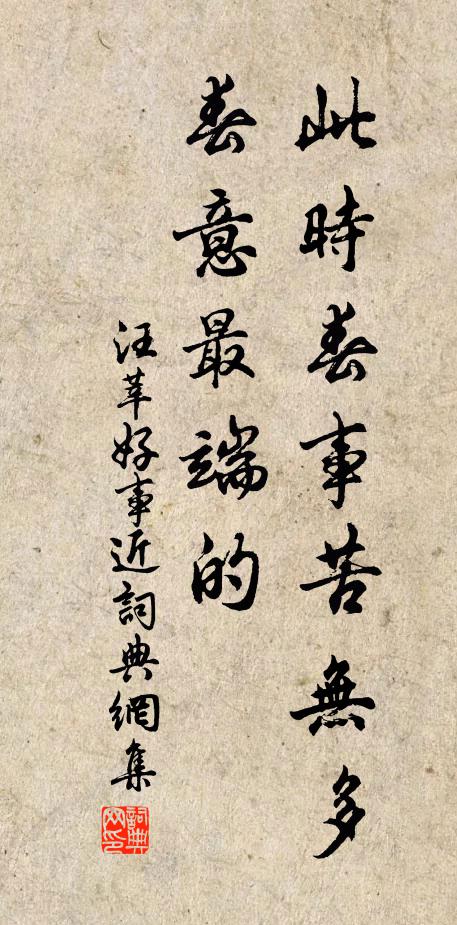 此時春事苦無多
春意最端的
汪莘好事近詞典網集
詞典网印